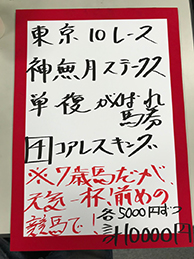 東京10レース
神無月ステークス
単復がんばれ
馬券
4 コアレスキング
※7歳馬だが、
元気一杯!前めの
競馬で!
各5000円ずつ
計10000円